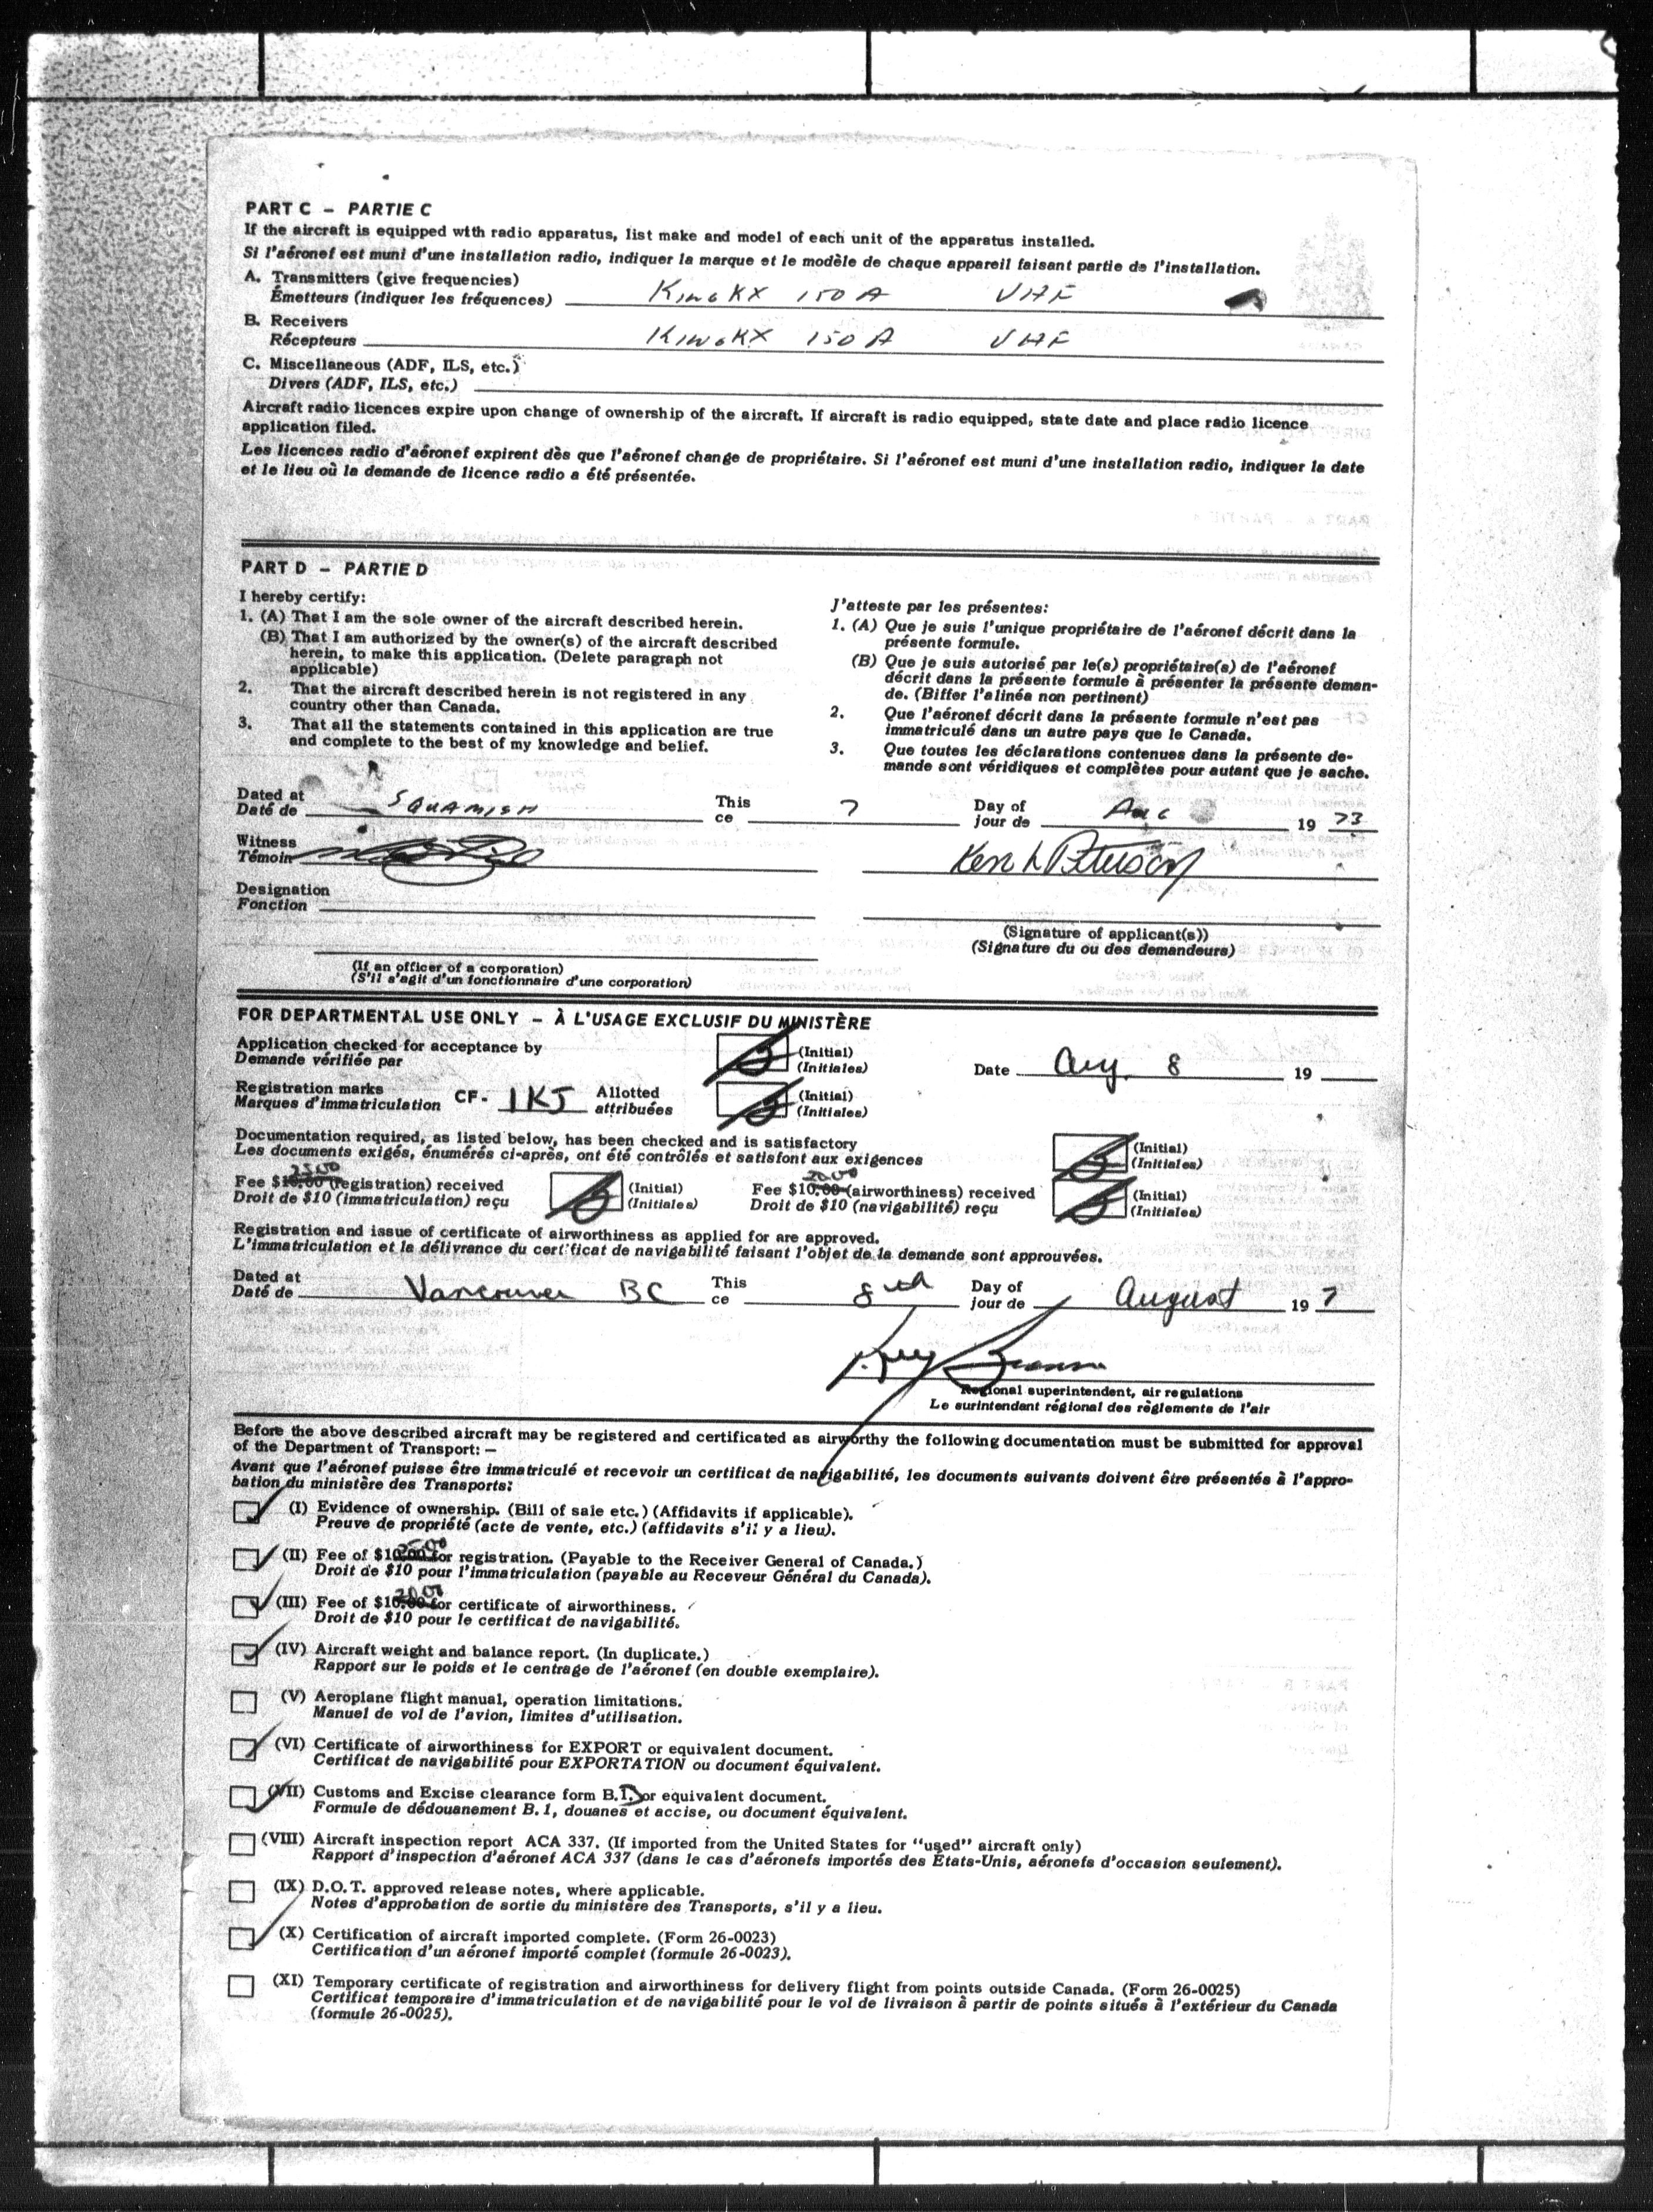 PART C – PARTIE C
If the aircraft is equipped with radio apparatus, list make and model of each unit of the apparatus installed.
Si l'aéronef est muni d'une installation radio, indiquer la marque et le modèle de chaque appareil faisant partie de l'installation.
A. Transmitters (give frequencies)
Émetteurs (indiquer les fréquences) King KX 150 A VHF
B. Receivers
Récepteurs King KX 150 A VHF
C. Miscellaneous (ADF, ILS, etc.)
Divers (ADF, ILS, etc.)
Aircraft radio licences expire upon change of ownership of the aircraft. If aircraft is radio equipped, state date and place radio licence
application filed.
Les licences radio d'aéronef expirent dès que l'aéronef change de propriétaire. Si l'aéronef est muni d'une installation radio, indiquer la date
et le lieu où la demande de licence radio a été présentée.
PART D – PARTIE D
I hereby certify:
1. (A) That I am the sole owner of the aircraft described herein.
(B) That I am authorized by the owner(s) of the aircraft described
herein, to make this application. (Delete paragraph not
applicable)
2. That the aircraft described herein is not registered in any
country other than Canada.
3. That all the statements contained in this application are true
and complete to the best of my knowledge and belief.
J'atteste par les présentes:
1. (A) Que je suis l'unique propriétaire de l'aéronef décrit dans la
présente formule.
(B) Que je suis autorisé par le(s) propriétaire(s) de l'aéronef
décrit dans la présente formule à présenter la présente deman-
de. (Biffer l'alinéa non pertinent)
2. Que l'aéronef décrit dans la présente formule n'est pas
immatriculé dans un autre pays que le Canada.
3. Que toutes les déclarations contenues dans la présente de-
mande sont véridiques et complètes pour autant que je sache.
Dated at This Day of
Daté de SQUAMISH ce 7 jour de Aug 19 73
Witness
Témoin Ken L Peterson
Designation
Fonction
(Signature of applicant(s))
(Signature du ou des demandeurs)
(If an officer of a corporation)
(S'il s'agit d'un fonctionnaire d'une corporation)
FOR DEPARTMENTAL USE ONLY – À L'USAGE EXCLUSIF DU MINISTÈRE
Application checked for acceptance by (Initial)
Demande vérifiée par (Initiales) Date Aug. 8 19
Registration marks CF- IKJ Allotted (Initial)
Marques d'immatriculation attribuées (Initiales)
Documentation required, as listed below, has been checked and is satisfactory (Initial)
Les documents exigés, énumérés ci-après, ont été contrôlés et satisfont aux exigences (Initiales)
25.00 20.00
Fee $10.00 (registration) received (Initial) Fee $10.00 (airworthiness) received (Initial)
Droit de $10 (immatriculation) reçu (Initiales) Droit de $10 (navigabilité) reçu (Initiales)
Registration and issue of certificate of airworthiness as applied for are approved.
L'immatriculation et la délivrance du certificat de navigabilité faisant l'objet de la demande sont approuvées.
Dated at This Day of
Daté de Vancouver BC ce 8th jour de August 19 7
Regional superintendent, air regulations
Le surintendant régional des règlements de l'air
Before the above described aircraft may be registered and certificated as airworthy the following documentation must be submitted for approval
of the Department of Transport: –
Avant que l'aéronef puisse être immatriculé et recevoir un certificat de navigabilité, les documents suivants doivent être présentés à l'appro-
bation du ministère des Transports:
(I) Evidence of ownership. (Bill of sale etc.) (Affidavits if applicable).
Preuve de propriété (acte de vente, etc.) (affidavits s'il y a lieu).
25.00
(II) Fee of $10.00 for registration. (Payable to the Receiver General of Canada.)
Droit de $10 pour l'immatriculation (payable au Receveur Général du Canada).
20.00
(III) Fee of $10.00 for certificate of airworthiness.
Droit de $10 pour le certificat de navigabilité.
(IV) Aircraft weight and balance report. (In duplicate.)
Rapport sur le poids et le centrage de l'aéronef (en double exemplaire).
(V) Aeroplane flight manual, operation limitations.
Manuel de vol de l'avion, limites d'utilisation.
(VI) Certificate of airworthiness for EXPORT or equivalent document.
Certificat de navigabilité pour EXPORTATION ou document équivalent.
(VII) Customs and Excise clearance form B.1, or equivalent document.
Formule de dédouanement B. 1, douanes et accise, ou document équivalent.
(VIII) Aircraft inspection report ACA 337. (If imported from the United States for "used" aircraft only)
Rapport d'inspection d'aéronef ACA 337 (dans le cas d'aéronefs importés des États-Unis, aéronefs d'occasion seulement).
(IX) D.O.T. approved release notes, where applicable.
Notes d'approbation de sortie du ministère des Transports, s'il y a lieu.
(X) Certification of aircraft imported complete. (Form 26-0023)
Certification d'un aéronef importé complet (formule 26-0023).
(XI) Temporary certificate of registration and airworthiness for delivery flight from points outside Canada. (Form 26-0025)
Certificat temporaire d'immatriculation et de navigabilité pour le vol de livraison à partir de points situés à l'extérieur du Canada
(formule 26-0025).